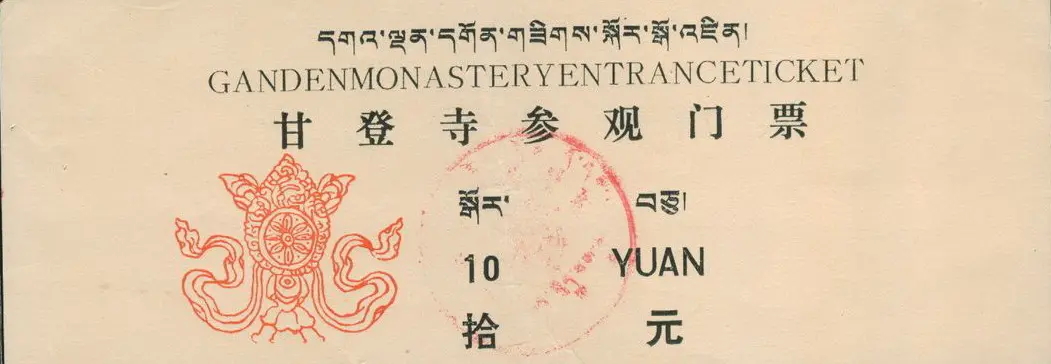 དགའ་ལྡན་དགོན་གཟིགས་སྐོར་སྒོ་འཛིན།
GANDENMONASTERYENTRANCETICKET
甘登寺参观门票
སྒོར་ བཅུ།
10 YUAN
拾 元